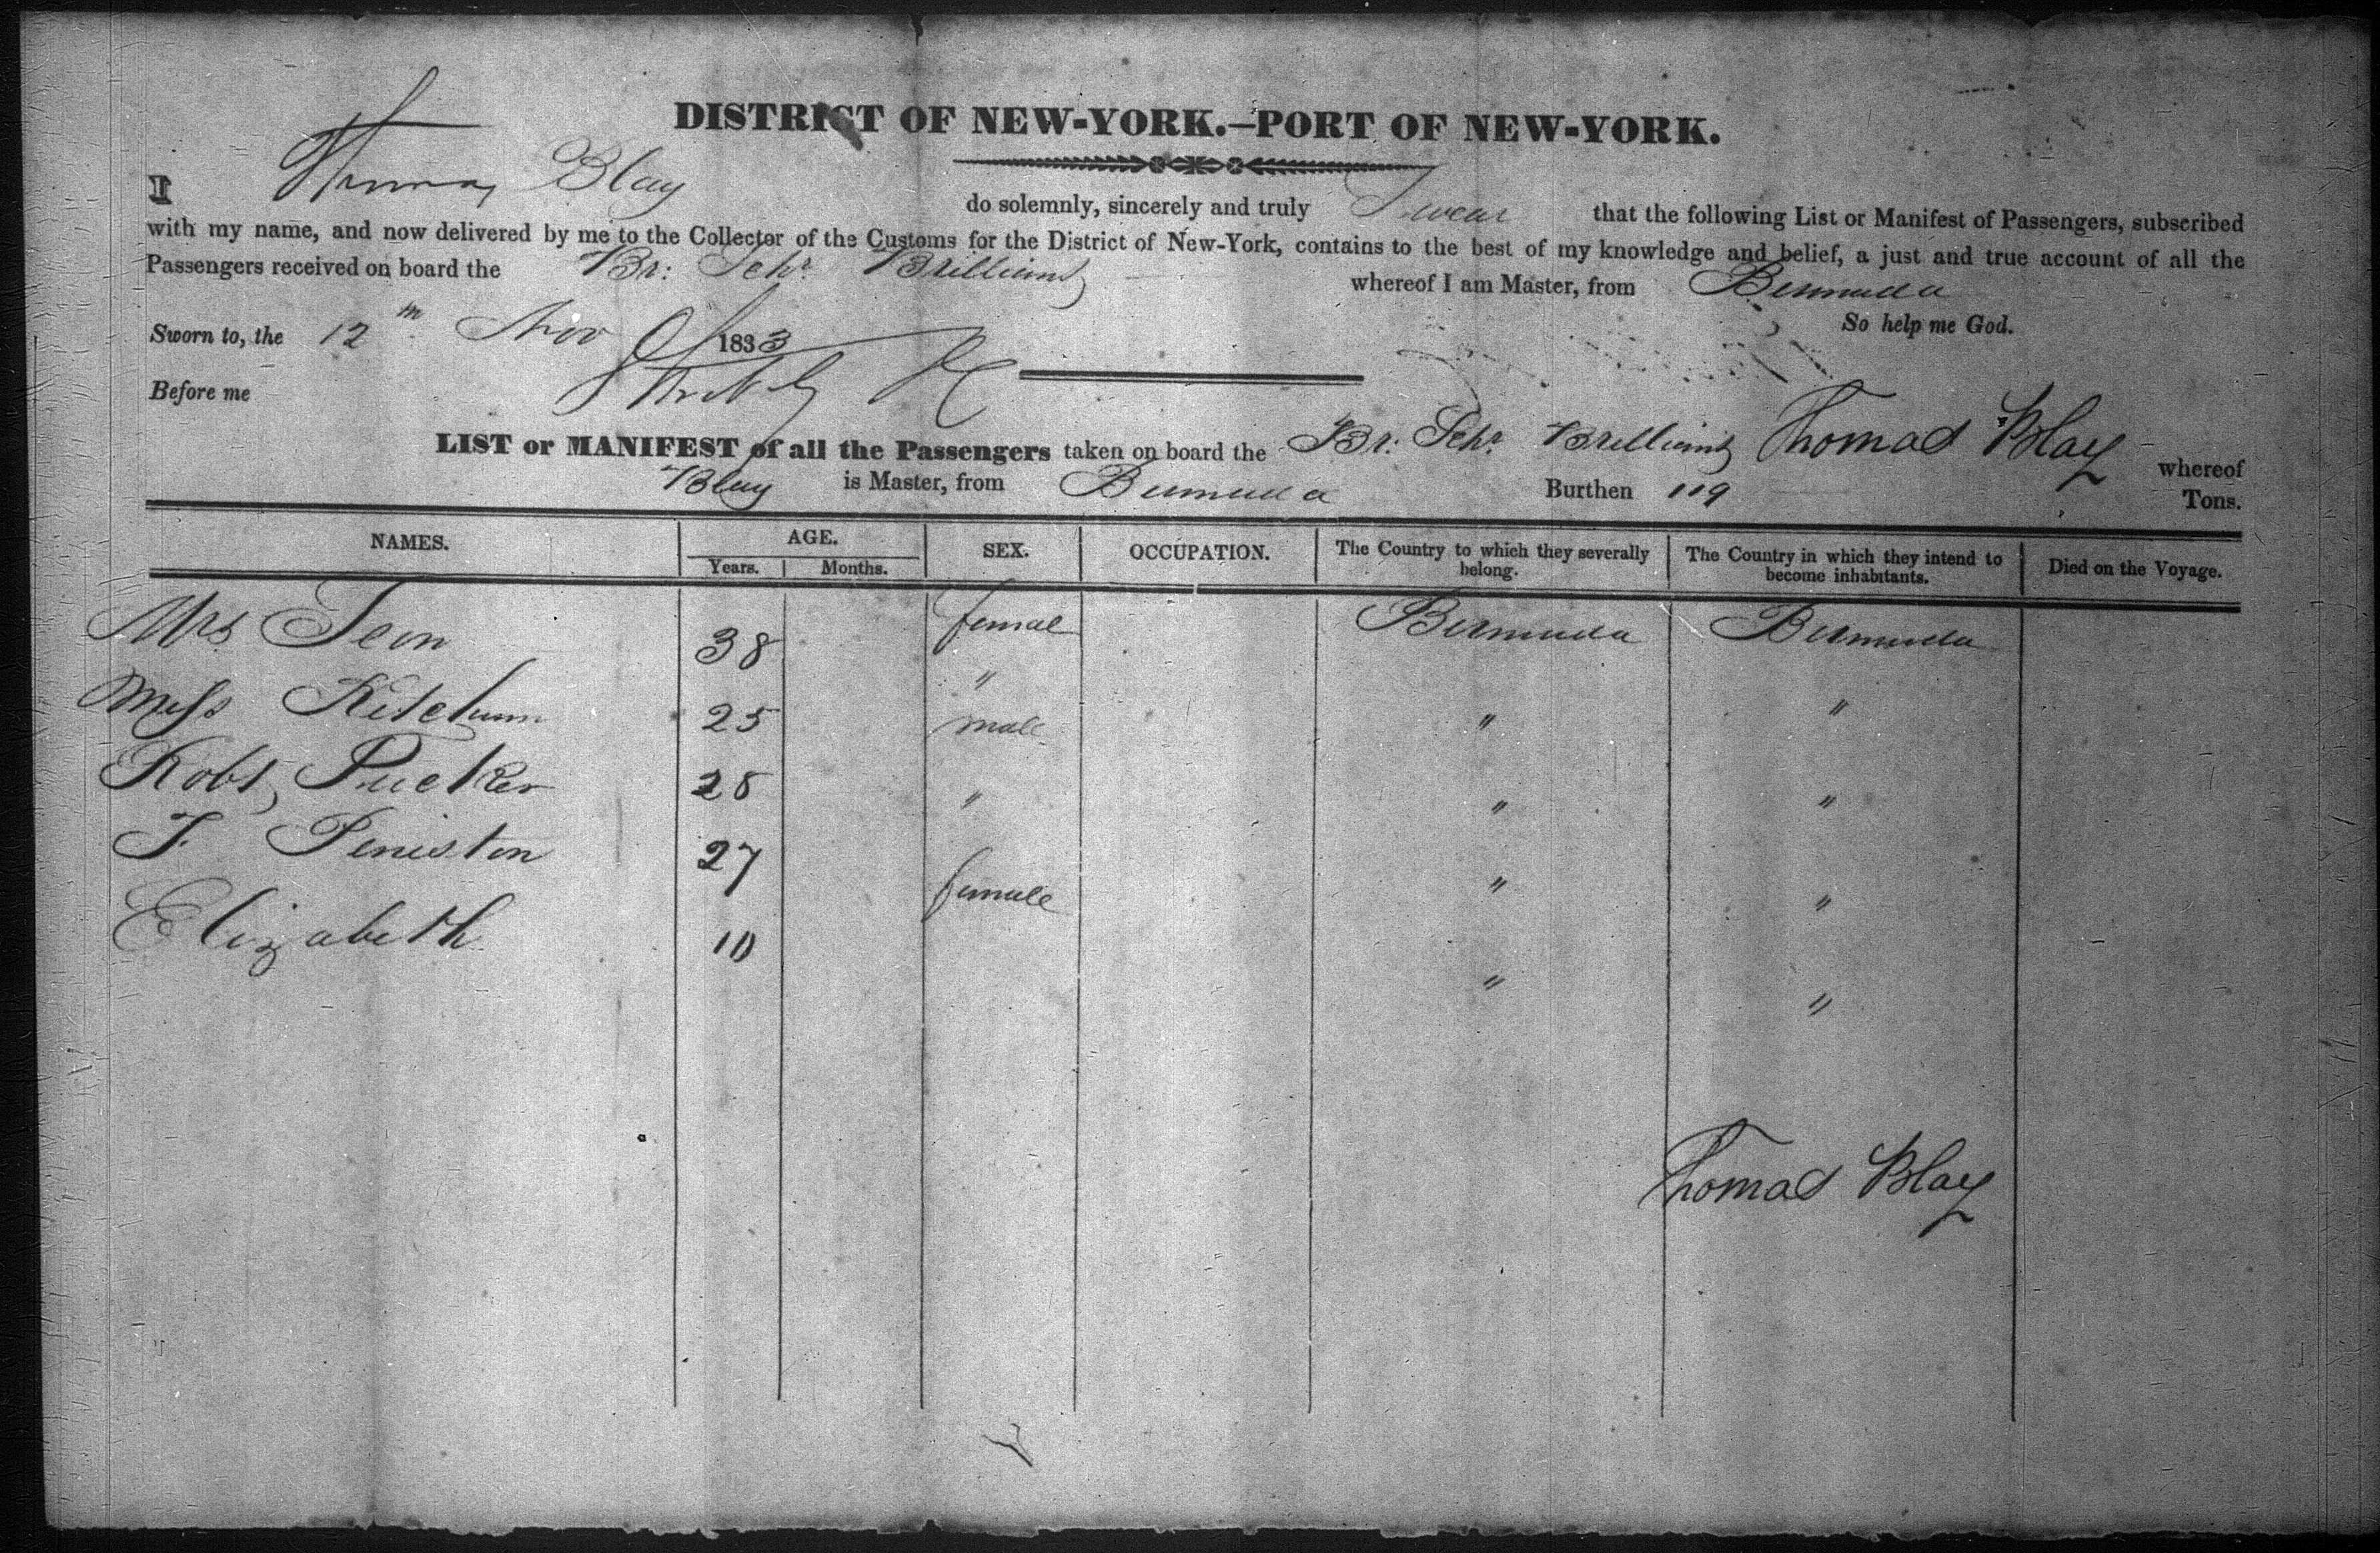 DISTRICT OF NEW-YORK.—PORT OF NEW-YORK.
I Thomas Blay do solemnly, sincerely and truly Swear that the following List or Manifest of Passengers, subscribed
with my name, and now delivered by me to the Collector of the Customs for the District of New-York, contains to the best of my knowledge and belief, a just and true account of all the
Passengers received on board the Br: Schr Brilliant whereof I am Master, from Bermuda
So help me God.
Sworn to, the 12th Nov 1833
Before me
Thomas Blay
LIST or MANIFEST of all the Passengers taken on board the Br: Schr Brilliant whereof
Blay is Master, from Bermuda Burthen 119 Tons.
NAMES. AGE. SEX. OCCUPATION. The Country to which they severally belong. The Country in which they intend to become inhabitants. Died on the Voyage.
Years. Months.
Mrs 38 femal Bermuda Bermuda
Miss Ketchum 25 " " "
Robt 28 male " "
Peniston 27 " " "
Elizabeth 10 female " "
Thomas Blay